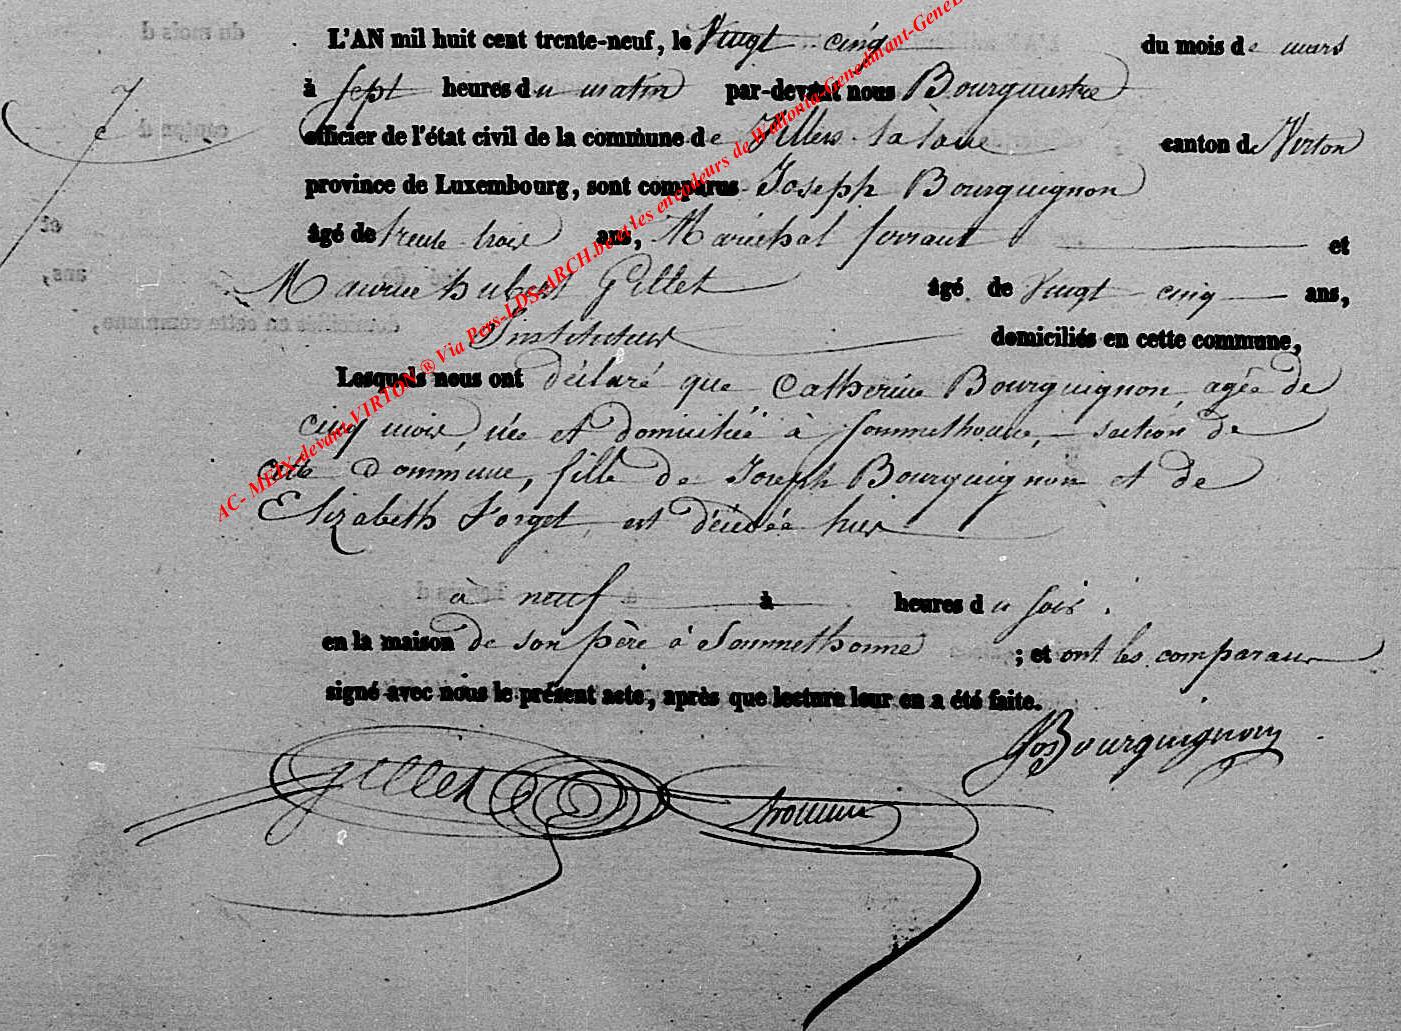 L'AN mil huit cent trente-neuf, le Vingt cinq du mois de mars
7e
à sept heures du matin par-devant nous Bourguestre
officier de l'état civil de la commune de Villers la loue canton de Virton
province de Luxembourg, sont comparus Joseph Bourguignon
âgé de trente trois ans, Maréchal ferrant et
Maurice hubert Gillet âgé de Vingt cinq ans,
Instituteur domiciliés en cette commune,
Lesquels nous ont déclaré que Catherine Bourguignon, agée de
cinq mois, née et domiciliée à Sommethonne, section de
cette Commune, fille de Joseph Bourguignon et de
Elizabeth Forget, est décédée hier
à neuf à heures du soir.
en la maison de son père à Sommethonne ; et ont les comparans
signé avec nous le présent acte, après que lecture leur en a été faite.
Jos Bourguignon
Gillet
AC- MEIX-devant-VIRTON ® Via Pers-LDS-ARCH.be et les encodeurs de Wallonia-Genedinant-GeneL